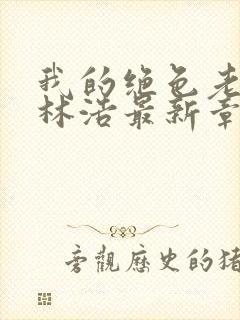 我的绝色老
林浩最新章
旁观历史的猪